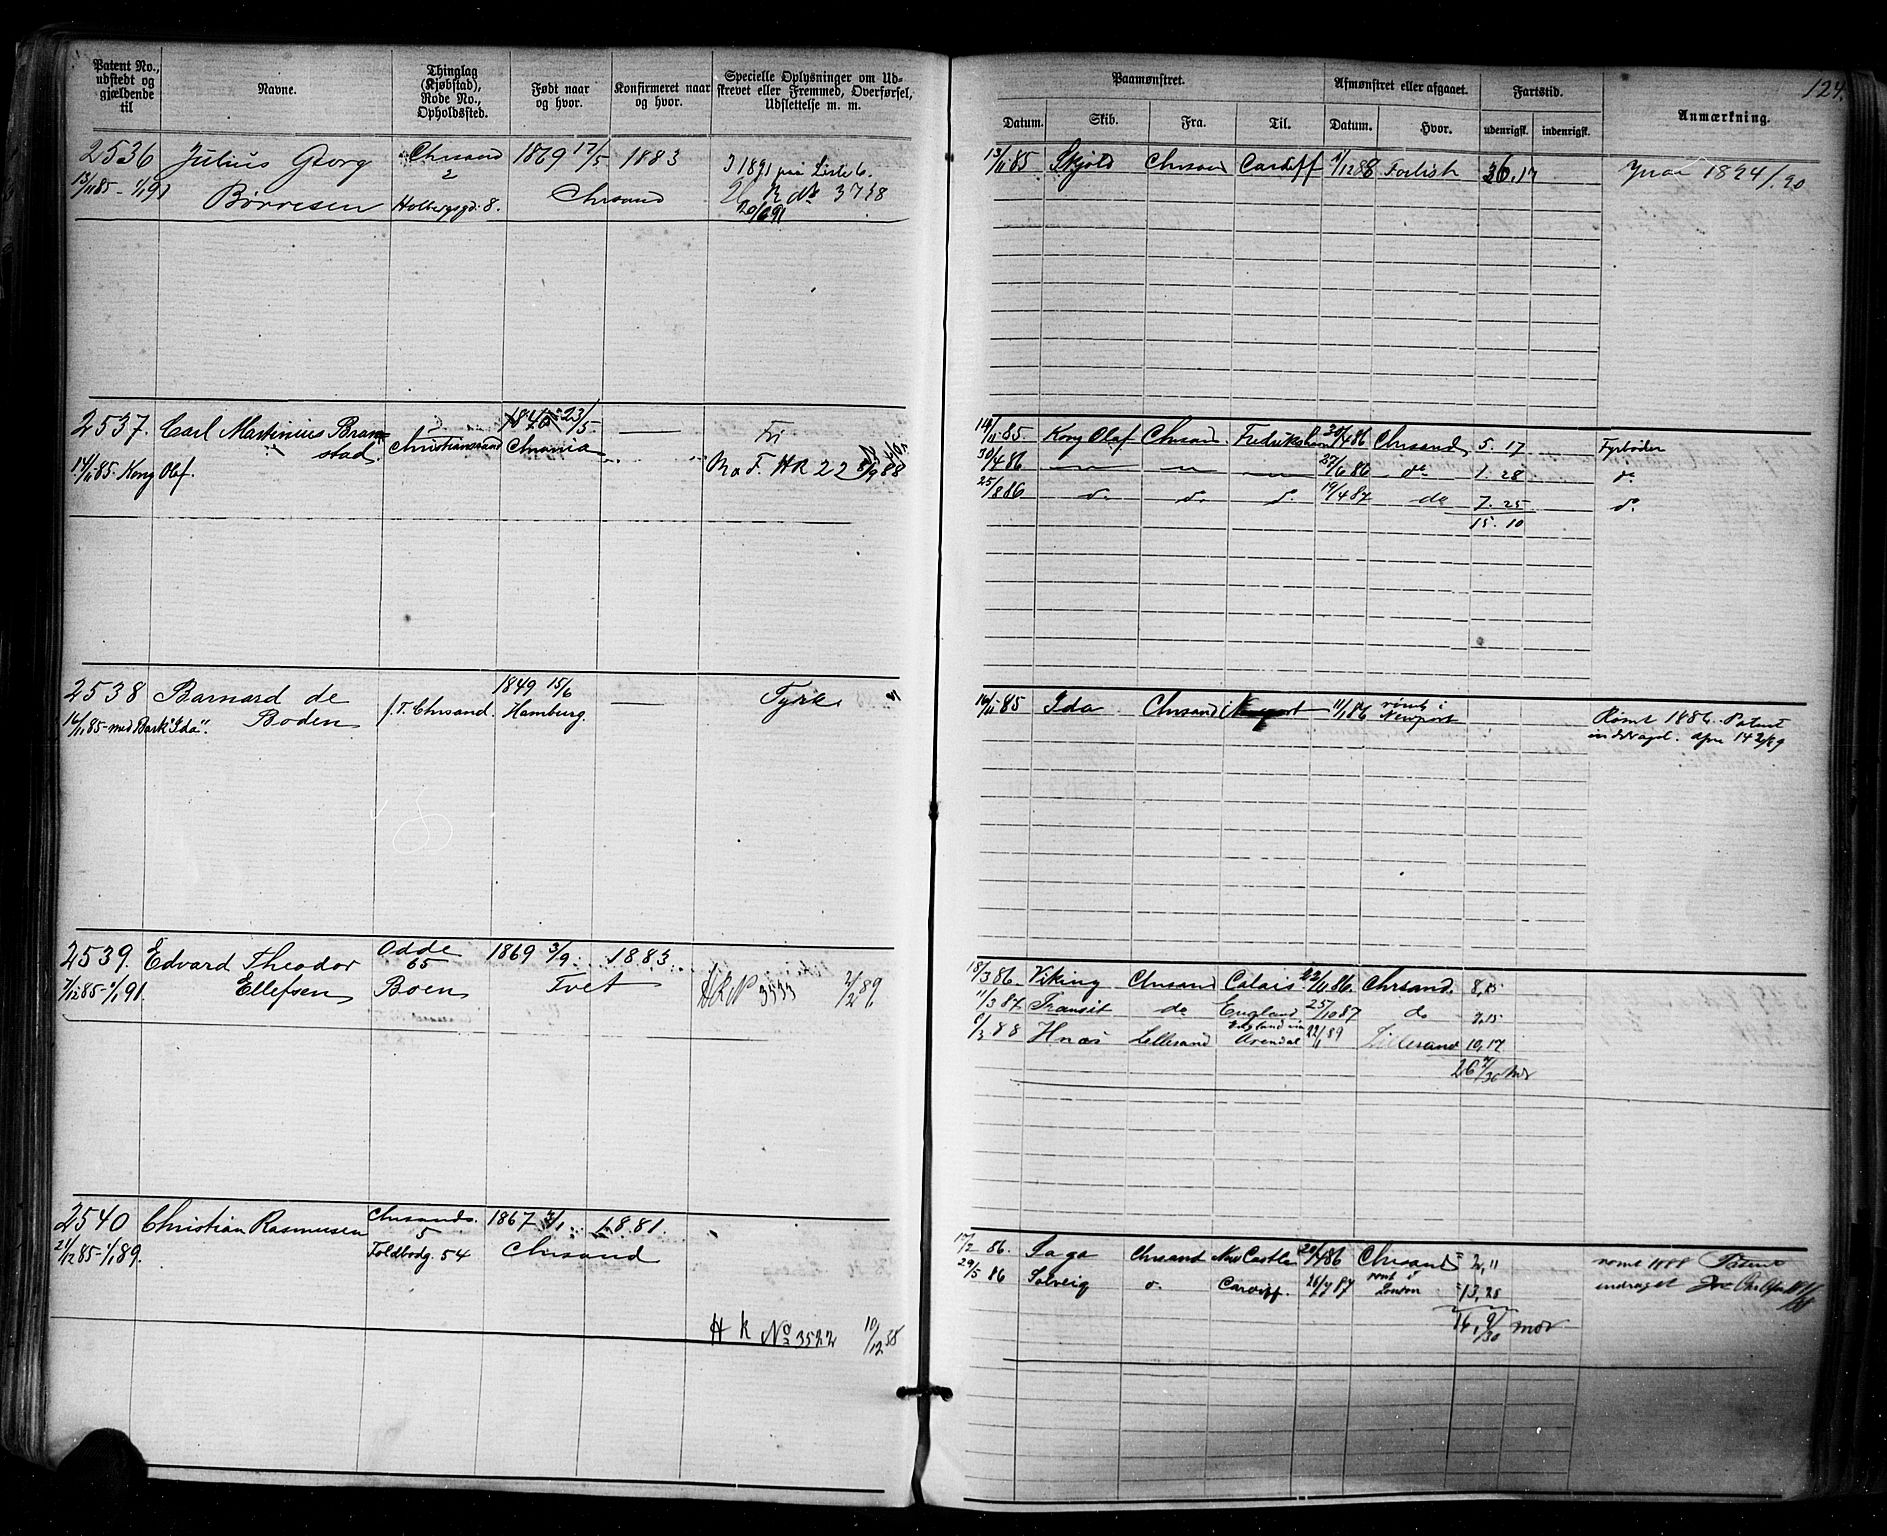 124.
Patent No., udstedt og gjældende til
Navne.
Thinglag (Kjøbstad), Rode No., Opholdssted.
Født naar og hvor.
Konfirmeret naar og hvor.
Specielle Oplysninger om Udskrevet eller Fremmed, Overførsel, Udslettelse m. m.
Paamønstret.
Datum. Skib. Fra. Til.
Afmønstret eller afgaaet.
Datum. Hvor.
Fartstid.
udenrigsk. indenrigsk.
Anmærkning.
2536 Julius Georg Chrsand 1869 17/5 1883 I 1891 paa Liste 6.
13/11 85 - 1/1 91 Børresen 2 Holbergsgd. 8. Chrsand No 3738
20/6 91
13/11 85 Skjold Chrsand Cardiff 1/12 88 Forlist 36.17 1894/.20
2537. Carl Martinius Bran- 1840 23/5 — Fri
stad Christianssand Chrania
14/11 85. Kong Olaf. HR 22 88
14/11 85. Kong Olaf Chrsand. Fredrikshavn 20/4 86 Chrsand 5.17 Fyrbøder
30/4 86 — — — 27/6 86 do 1.28 do
25/8 86 do. do. do. 19/4 87 do 7.25 do
15.10
2538 Barnard de f.T. Chrsand. 1849 15/6 — Tysk
16/11 85 - med Bark "Ida". Boden Hamburg.
16/11 85 Ida Chrsand Newport 11/1 86 rømt i Newport
Rømt 1886. Patent
inddraget.
2539. Edvard Theodor Odde 1869 3/9. 1883.
7/12 85 - 1/1 91. Ellefsen 65 Boen Tvet HR No 3533 2/2 89
18/3 86. Viking Chrsand Calais 22/11 86. Chrsand. 8,15
11/3 87. Transit do England 25/10 87 do 7.15
6/3 88 Hnos Lillesand England via Arendal 22/11 89 Lillesand 10,17
26 7/30 Mdr
2540 Christian Rasmussen Chrsands. 1867 3/1 1881.
21/12 85 - 1/1 89. 5 Toldbodg. 54 Chrsand
HR No 3522 10/12 88
17/2 86. Saga Chrsand New Castle 20/4 86 Chrsand 2,11
29/5 86 Solveig do. Cardiff. 26/7 87 rømt i London 13,28
16, 9/30 mdr
rømt 1888 Patent
inddraget